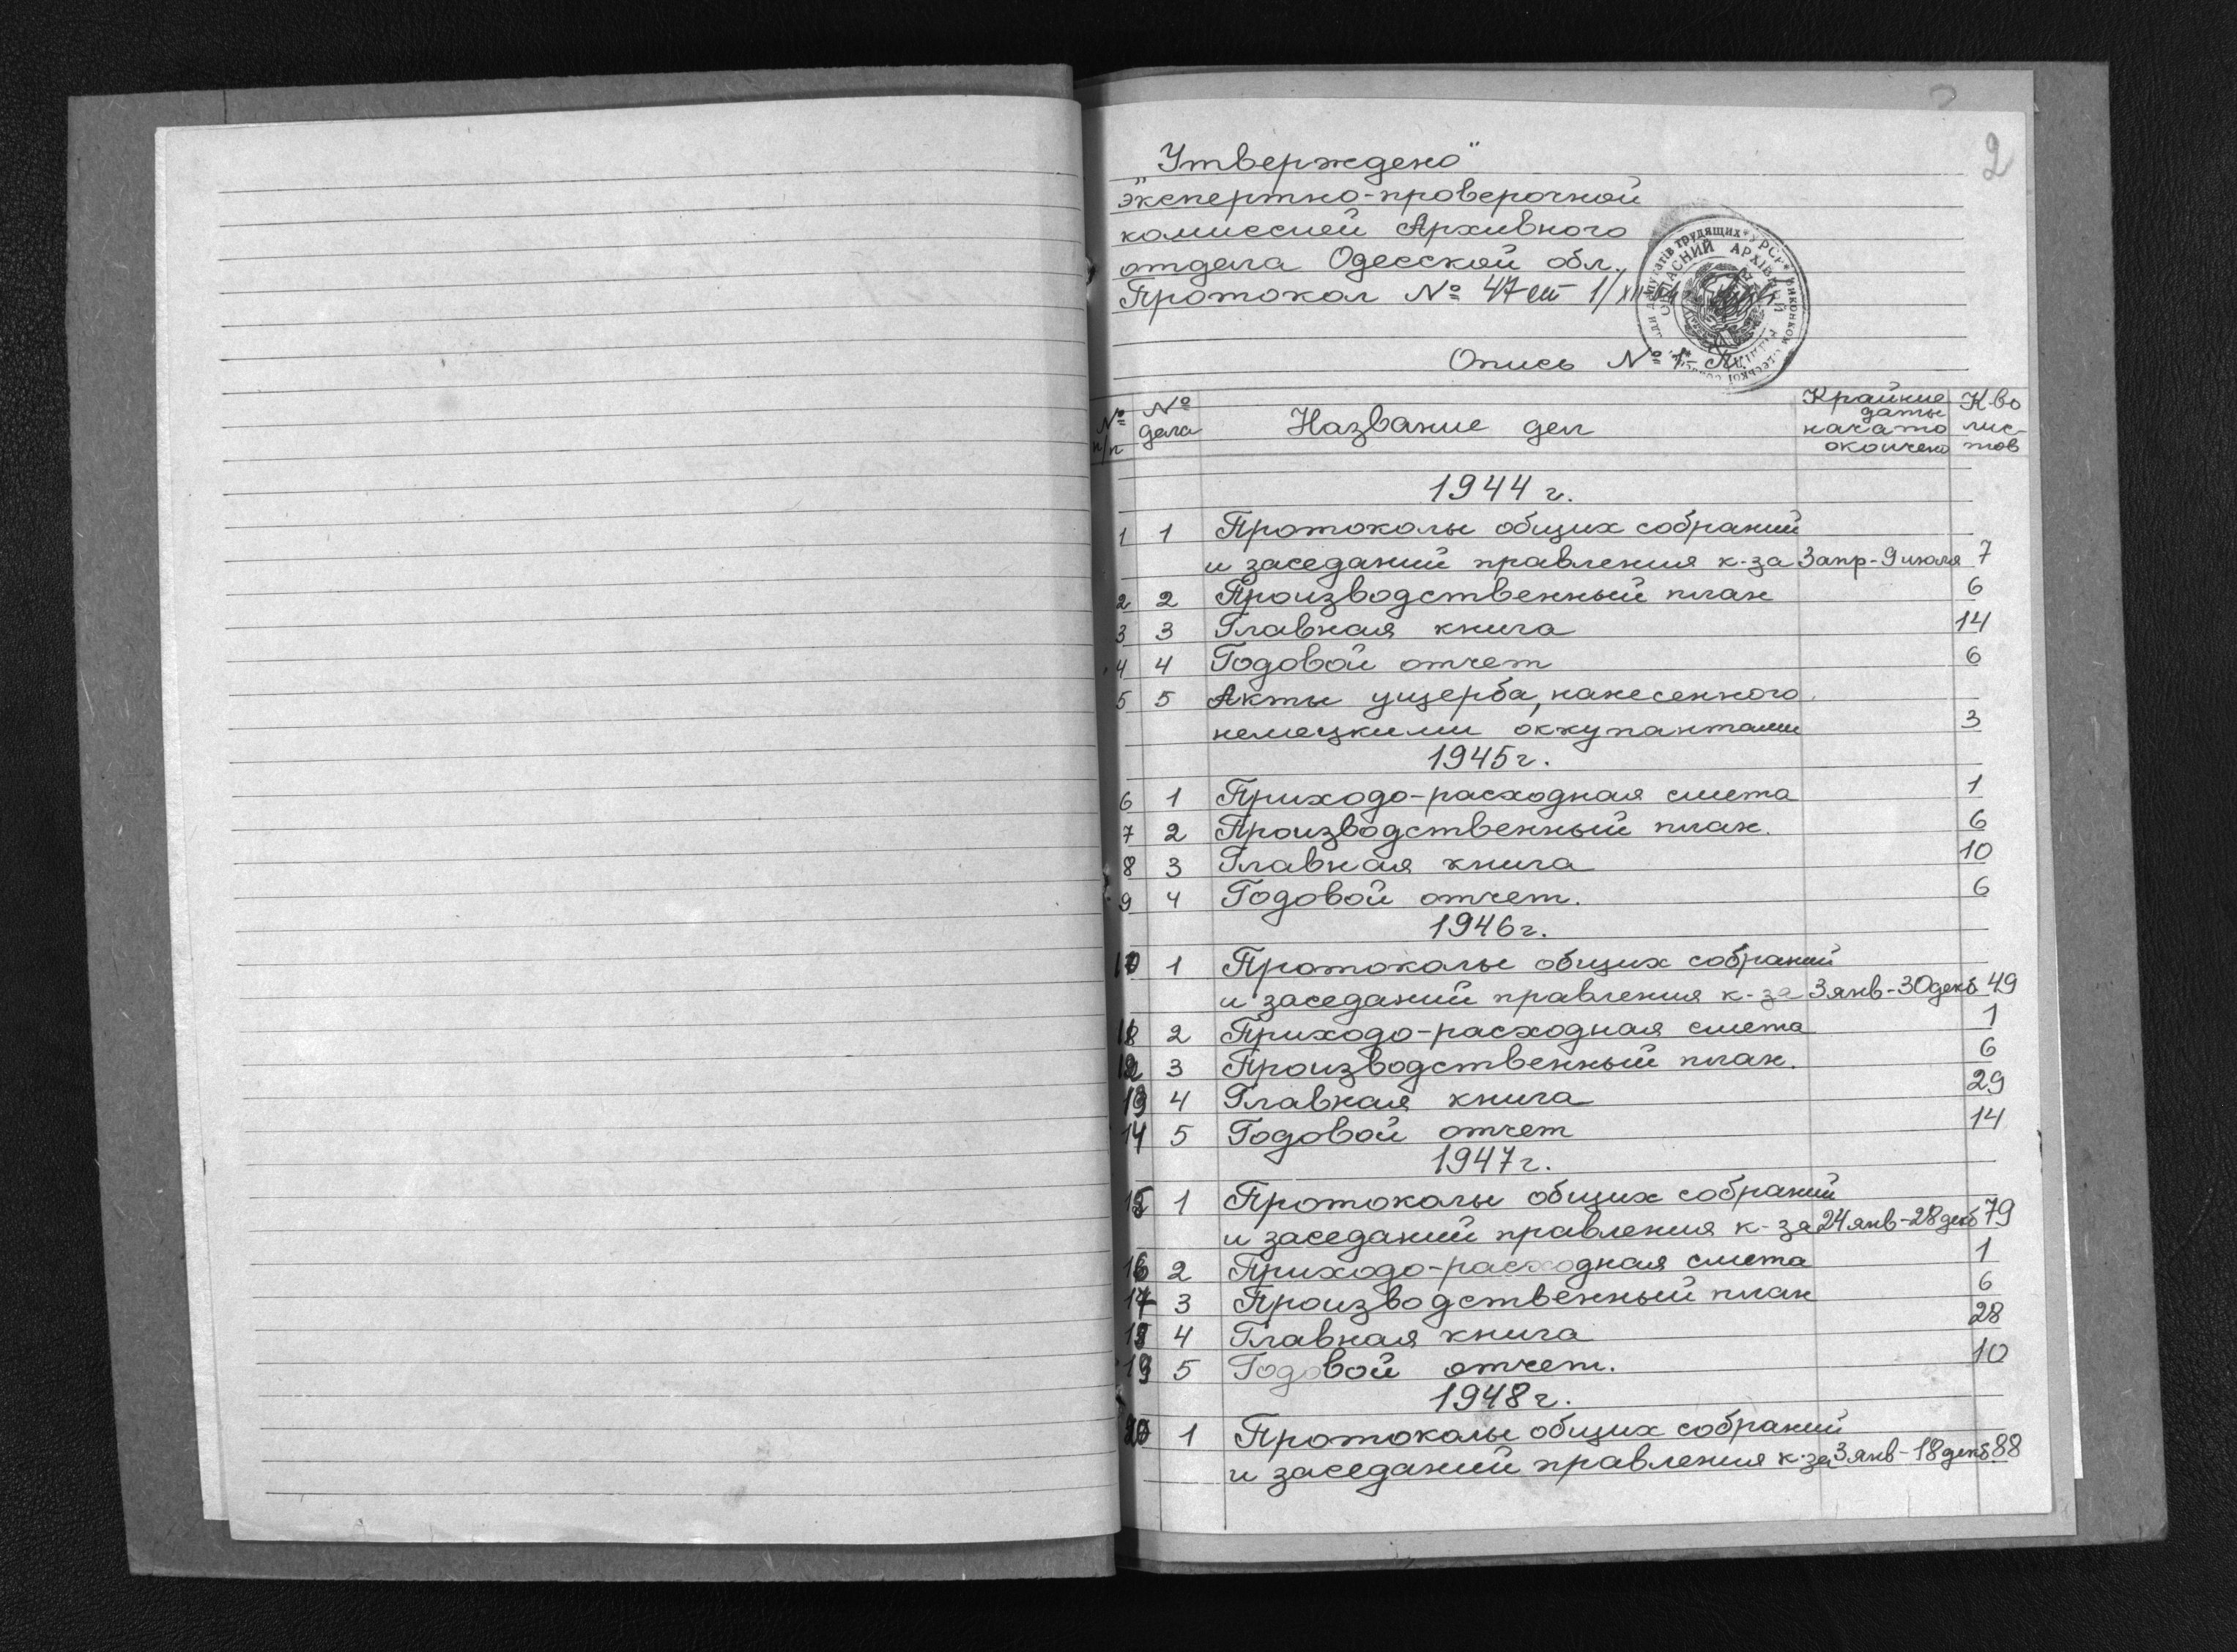 2
„Утверждено"
экспертно-проверочной
комиссией Архивного
отдела Одесской обл.
Протокол № 47 от 1/XII
ОБЛАСНИЙ АРХІВНИЙ
трудящих УРСР виконком
Опись № 1
№ п/п № дела Название дел Крайние даты начато окончено К-во лис-тов
1944 г.
1 1 Протоколы общих собраний
и заседаний правления к-за 3 апр-9 июля 7
2 2 Производственный план 6
3 3 Главная книга 14
4 4 Годовой отчет 6
5 5 Акты ущерба, нанесенного
немецкими оккупантами 3
1945 г.
6 1 Приходо-расходная смета 1
7 2 Производственный план. 6
8 3 Главная книга 10
9 4 Годовой отчет. 6
1946 г.
10 1 Протоколы общих собраний
и заседаний правления к-за 3 янв-30 декб 49
11 2 Приходо-расходная смета 1
12 3 Производственный план. 6
13 4 Главная книга 29
14 5 Годовой отчет 14
1947 г.
15 1 Протоколы общих собраний
и заседаний правления к-за 24 янв-28 декб 79
16 2 Приходо-расходная смета 1
17 3 Производственный план 6
18 4 Главная книга 28
19 5 Годовой отчет. 10
1948 г.
20 1 Протоколы общих собраний
и заседаний правления к-за 3 янв-18 декб 88